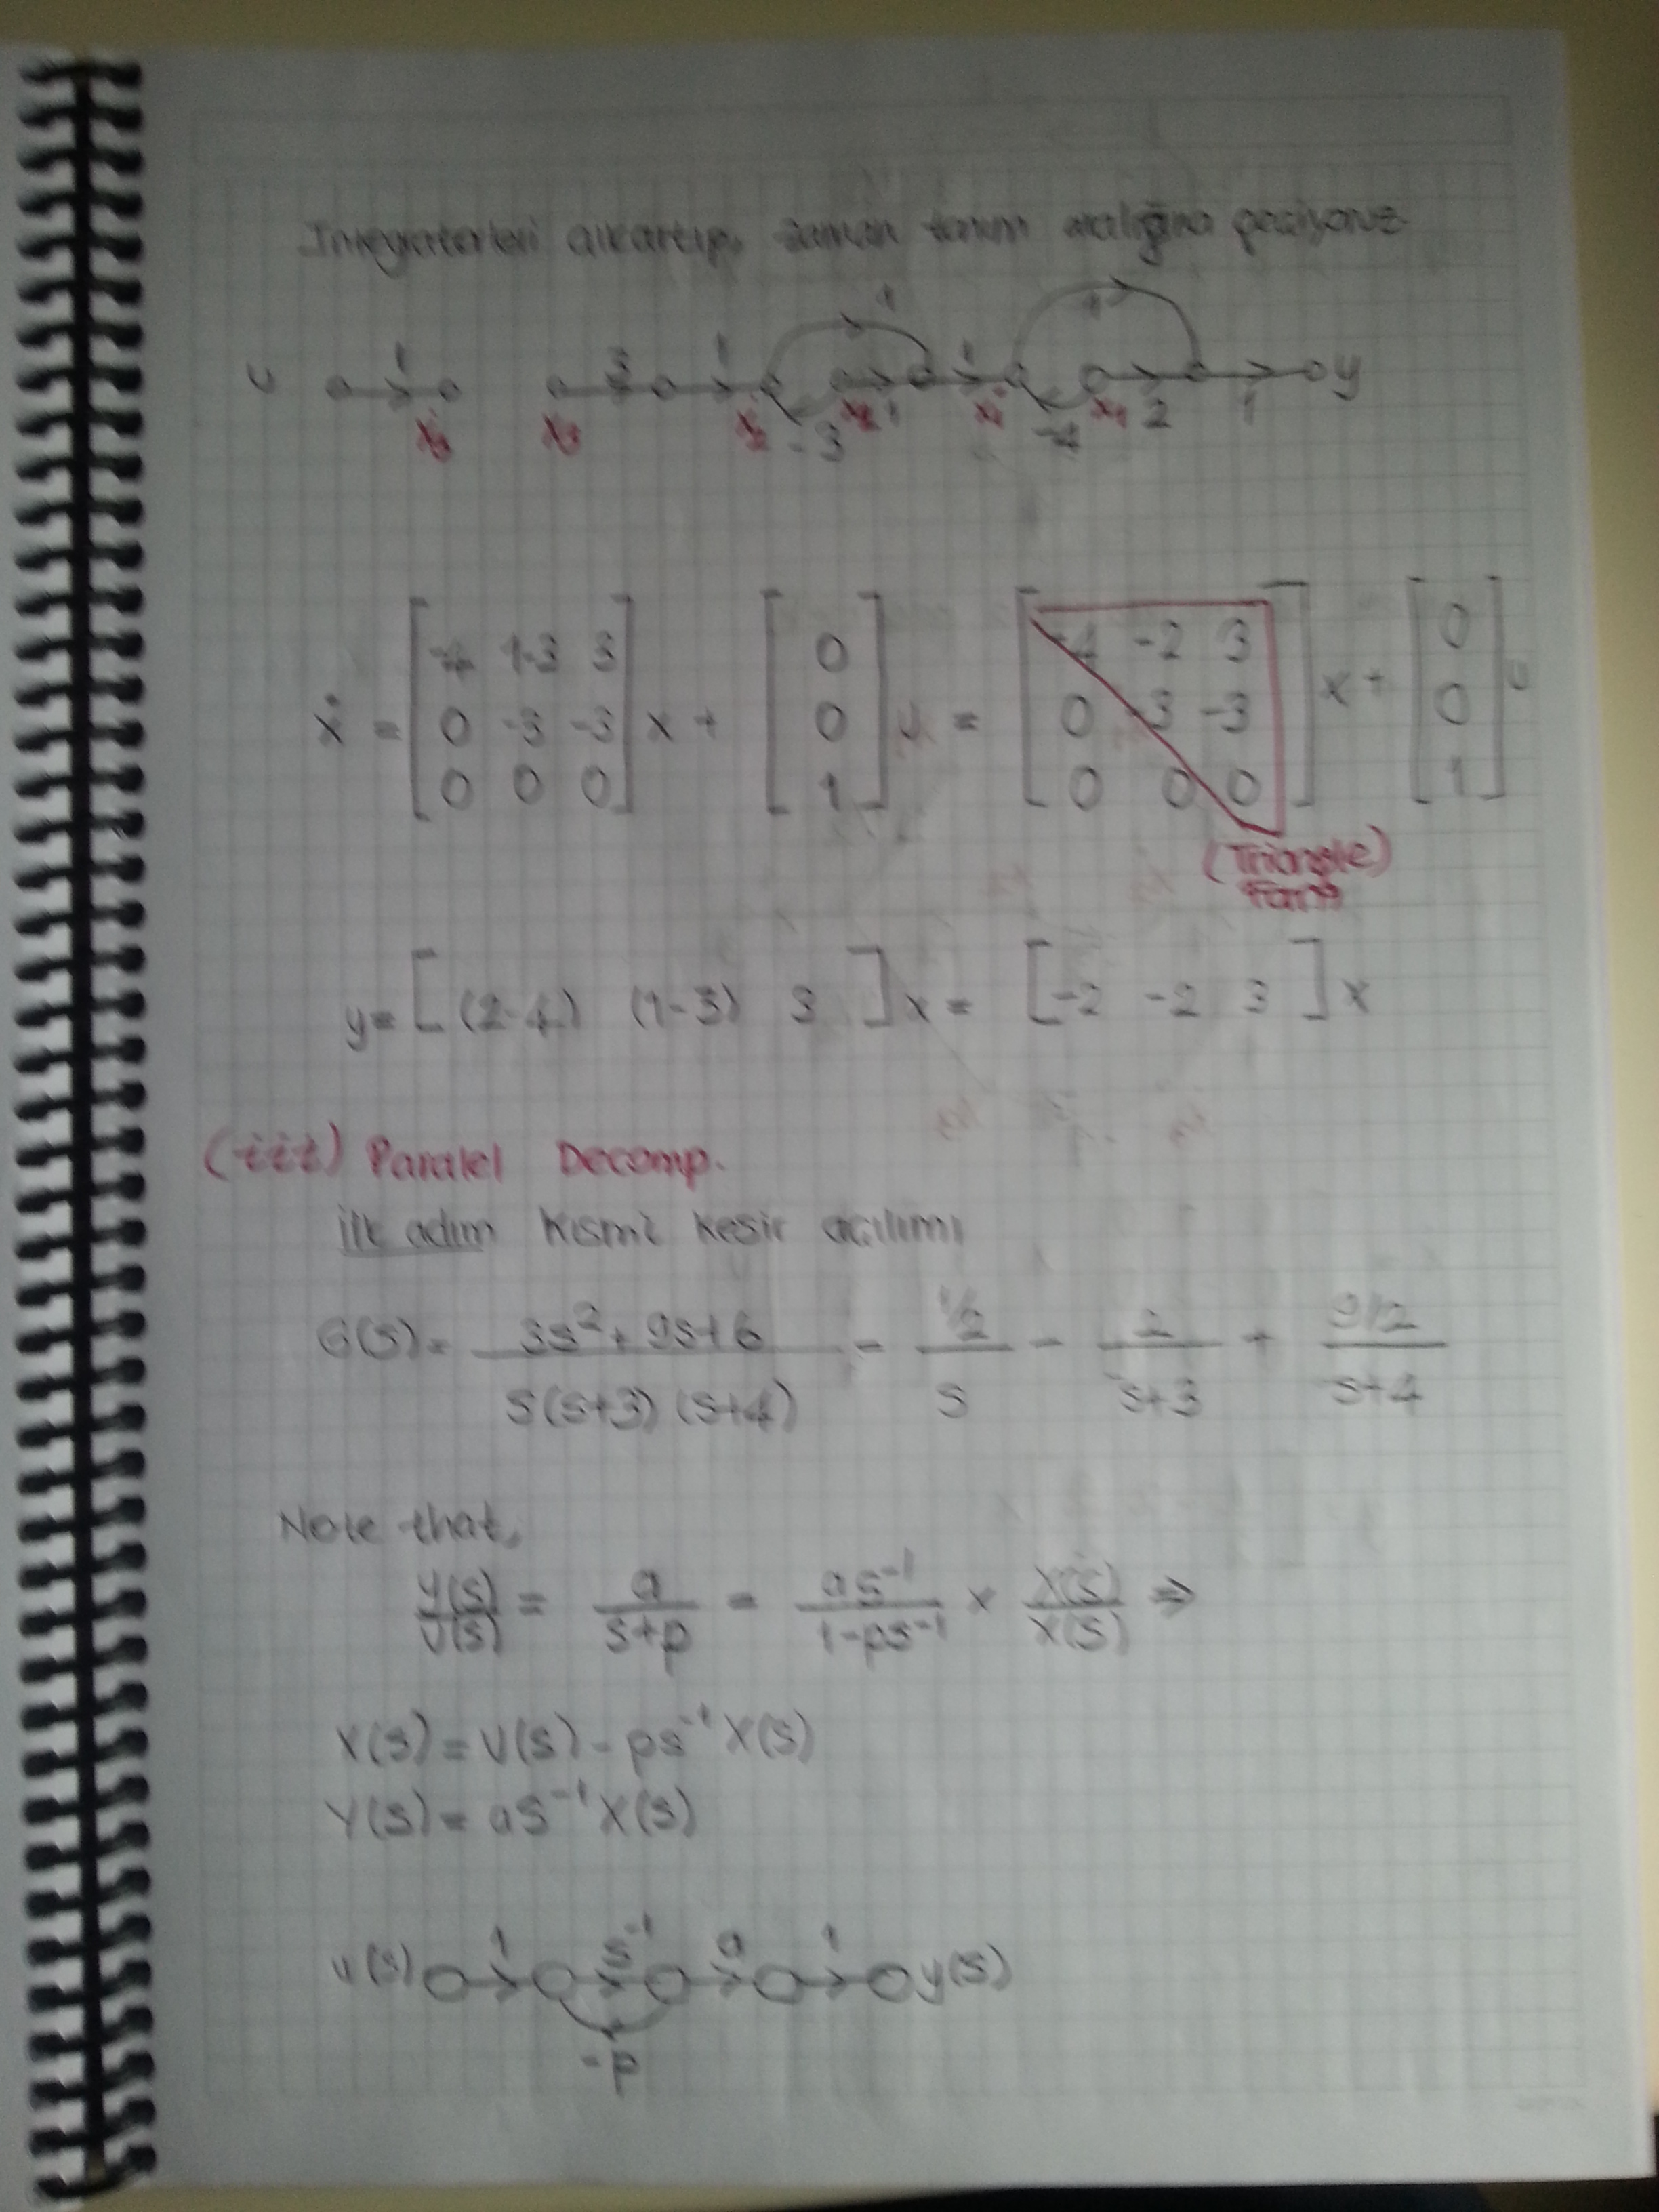 İntegratörleri çıkartıp, zaman tanım aralığına geçiyoruz
u 1 3 1 1 1 1 y
ẋ3 x3 ẋ2 -3 x2 1 ẋ1 -4 x1 2 1
ẋ = [-4 1-3 3; 0 -3 -3; 0 0 0] x + [0; 0; 1] u = [-4 -2 3; 0 -3 -3; 0 0 0] x + [0; 0; 1] u
(Triangle)
Form
y = [(2-4) (1-3) 3] x = [-2 -2 3] x
(iii) Paralel Decomp.
ilk adım kısmi kesir açılımı
G(s) = 3s² + 9s + 6 / s(s+3)(s+4) = 1/2 / s - 2 / s+3 + 9/2 / s+4
Note that,
y(s)/U(s) = a / s+p = as⁻¹ / 1-ps⁻¹ × X(s)/X(s) ⇒
X(s) = U(s) - ps⁻¹X(s)
Y(s) = as⁻¹X(s)
u(s) 1 s⁻¹ a 1 y(s)
-p